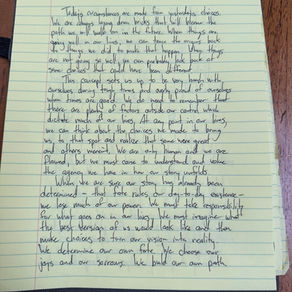 Today's circumstances are made from yesterday's choices.
We are always laying down bricks that will become the
path we will walk on in the future. When things are
going well in our lives, we can trace the origins back
to things we did to make that happen. When things
are not going so well, you can probably look back at
some choices that could have been different.
This concept sets us up to be very tough with
ourselves during tough times and overly proud of ourselves
when times are good. We do need to remember that
there are plenty of factors outside our control which
dictate much of our lives. At any point in our lives,
we can think about the choices we made to bring
us to that spot and realize that some were great
and others weren't. We are only human and we are
flawed, but we must come to understand and value
the agency we have in how our story unfolds.
When we are sure our story has already been
determined - that fate rules our day-to-day existence -
we lose much of our power. We must take responsibility
for what goes on in our lives. We must imagine what
the best version of us would look like and then
make choices to turn our vision into reality.
We determine our own fate. We choose our
joys and our sorrows. We build our own path.